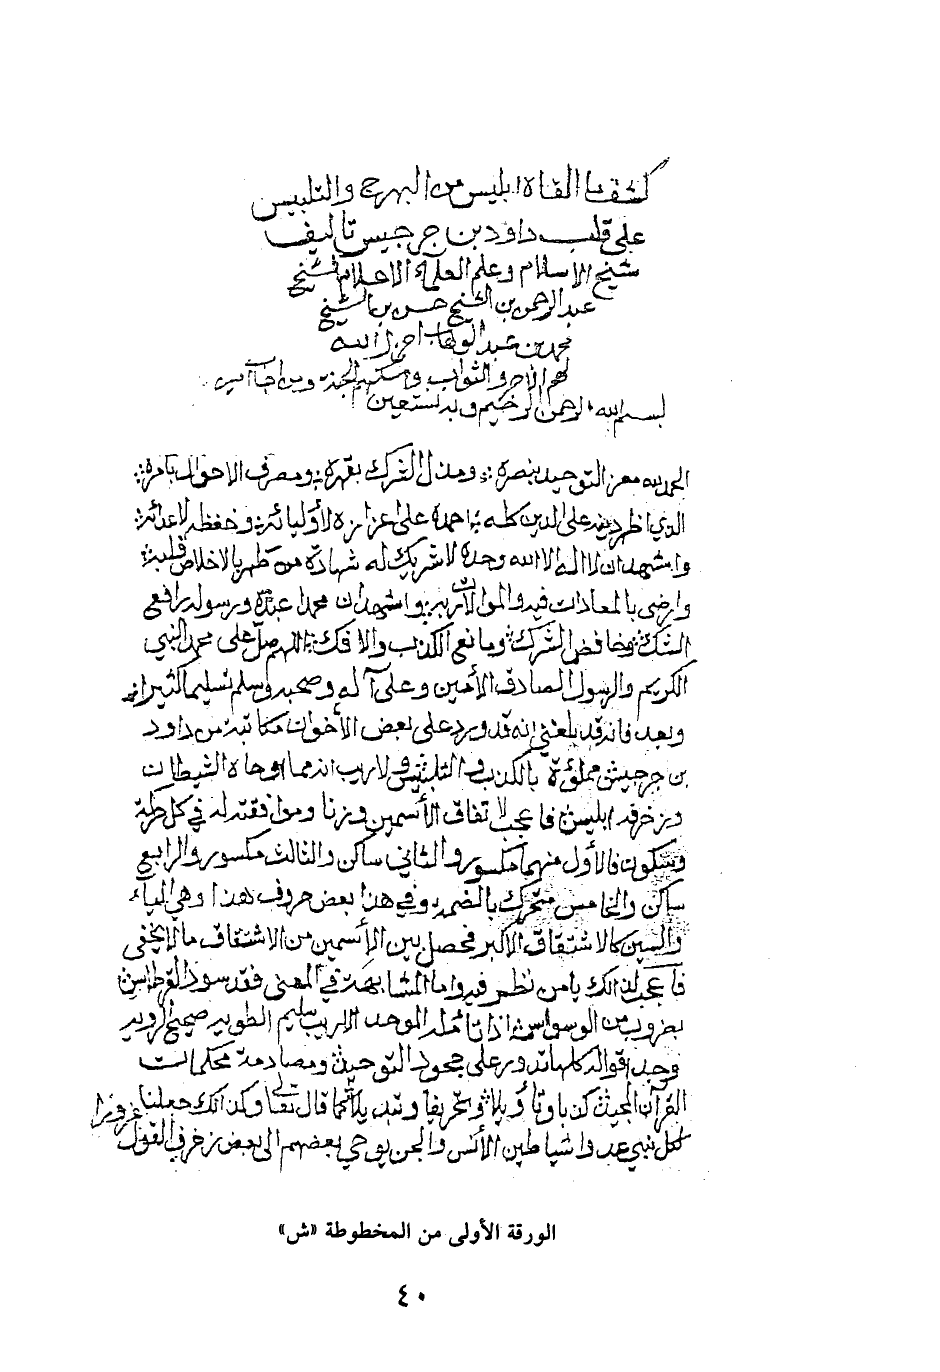 كشف ما القاه ابليس من البهرج والتلبيس
على قلب داود بن جرجيس تاليف
شيخ الاسلام وعلم العلماء الاعلام الشيخ
عبد الرحمن بن الشيخ حسن بن الشيخ
محمد بن عبد الوهاب اجزل الله
لهم الاجر والثواب واسكنهم الجنة ومن اجا آمين
بسم الله الرحمن الرحيم وبه نستعين
الحمد لله معز التوحيد بنصره ومذل الشرك بقهره ومصرف الاحوال بامره
الذي اظهر دينه على الدين كله احمده على اعزازه لأوليائه وخفظه لاعدائه
واشهد ان لا اله الا الله وحده لا شريك له شهادة من طهر بالاخلاص قلبه
وارضى بالمعادات فيه والموالات ربه واشهد ان محمدا عبده ورسوله رافع
الشك وخافض الشرك ومانع الكذب والافك اللهم صل على محمد النبي
الكريم والرسول الصادق الأمين وعلى آله وصحبه وسلم تسليما كثيرا
وبعد فانه قد بلغني انه قد ورد على بعض الأخوان مكاتبة من داود
بن جرجيس مملؤة بالكذب والتلبيس ولا ريب انه مما اوحاه الشيطان
وزخرفه ابليس فاعجب لاتفاق الأسمين وزنا وموافقته له في كل حركة
وسكون فالأول منهما مكسور والثاني ساكن والثالث مكسور والرابع
ساكن والخامس متحرك بالضمة وفي هذا بعض حروف هذا وهي الياء
والسين كالاشتقاق الاكبر فحصل بين الأسمين من الاشتقاق ما لا يخفى
فاعجب لذلك يا من نظر فيه واما المشابهة في المعنى فقد سود القرطاس
بضروب من الوسواس اذا تأمله الموحد الاريب سليم الطوية صحيح الروية
وجد اقواله كلها تدور على جحود التوحيد ومصادمة محكمات
القرآن المجيد كذبا وتأويلا وتحريفا وتبديلا كما قال تعالى وكذلك جعلنا
لكل نبي عدوا شياطين الأنس والجن يوحي بعضهم الى بعض زخرف القول غرورا
الورقة الأولى من المخطوطة «ش»
٤٠